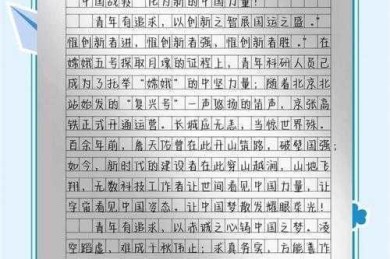 中国战疫”化为新的中国力量！
青年有追求，以创新之智展国运之盛。“
惟创新者进，惟创新者强，惟创新者胜。”在
嫦娥五号探取月壤的征程上，青年科研人员已
成为了托举“嫦娥”的中坚力量；随着北京北
站始发的“复兴号”一声悠扬的笛声，京张高
铁正式开通运营。长城应无恙，当惊世界殊。
百余年前，詹天佑曾在此开山筑路，破壁国强；
如今，新时代的建设者在此穿山越涧，山地飞
翔，无数科技工作者让世间看见中国力量，让
宇宙看见中国姿态，让中国梦散发耀眼荣光！
青年有追求，以赤诚之心铸中国之梦。凌
空蹈虚，难成千秋伟业；求真务实，方能善作